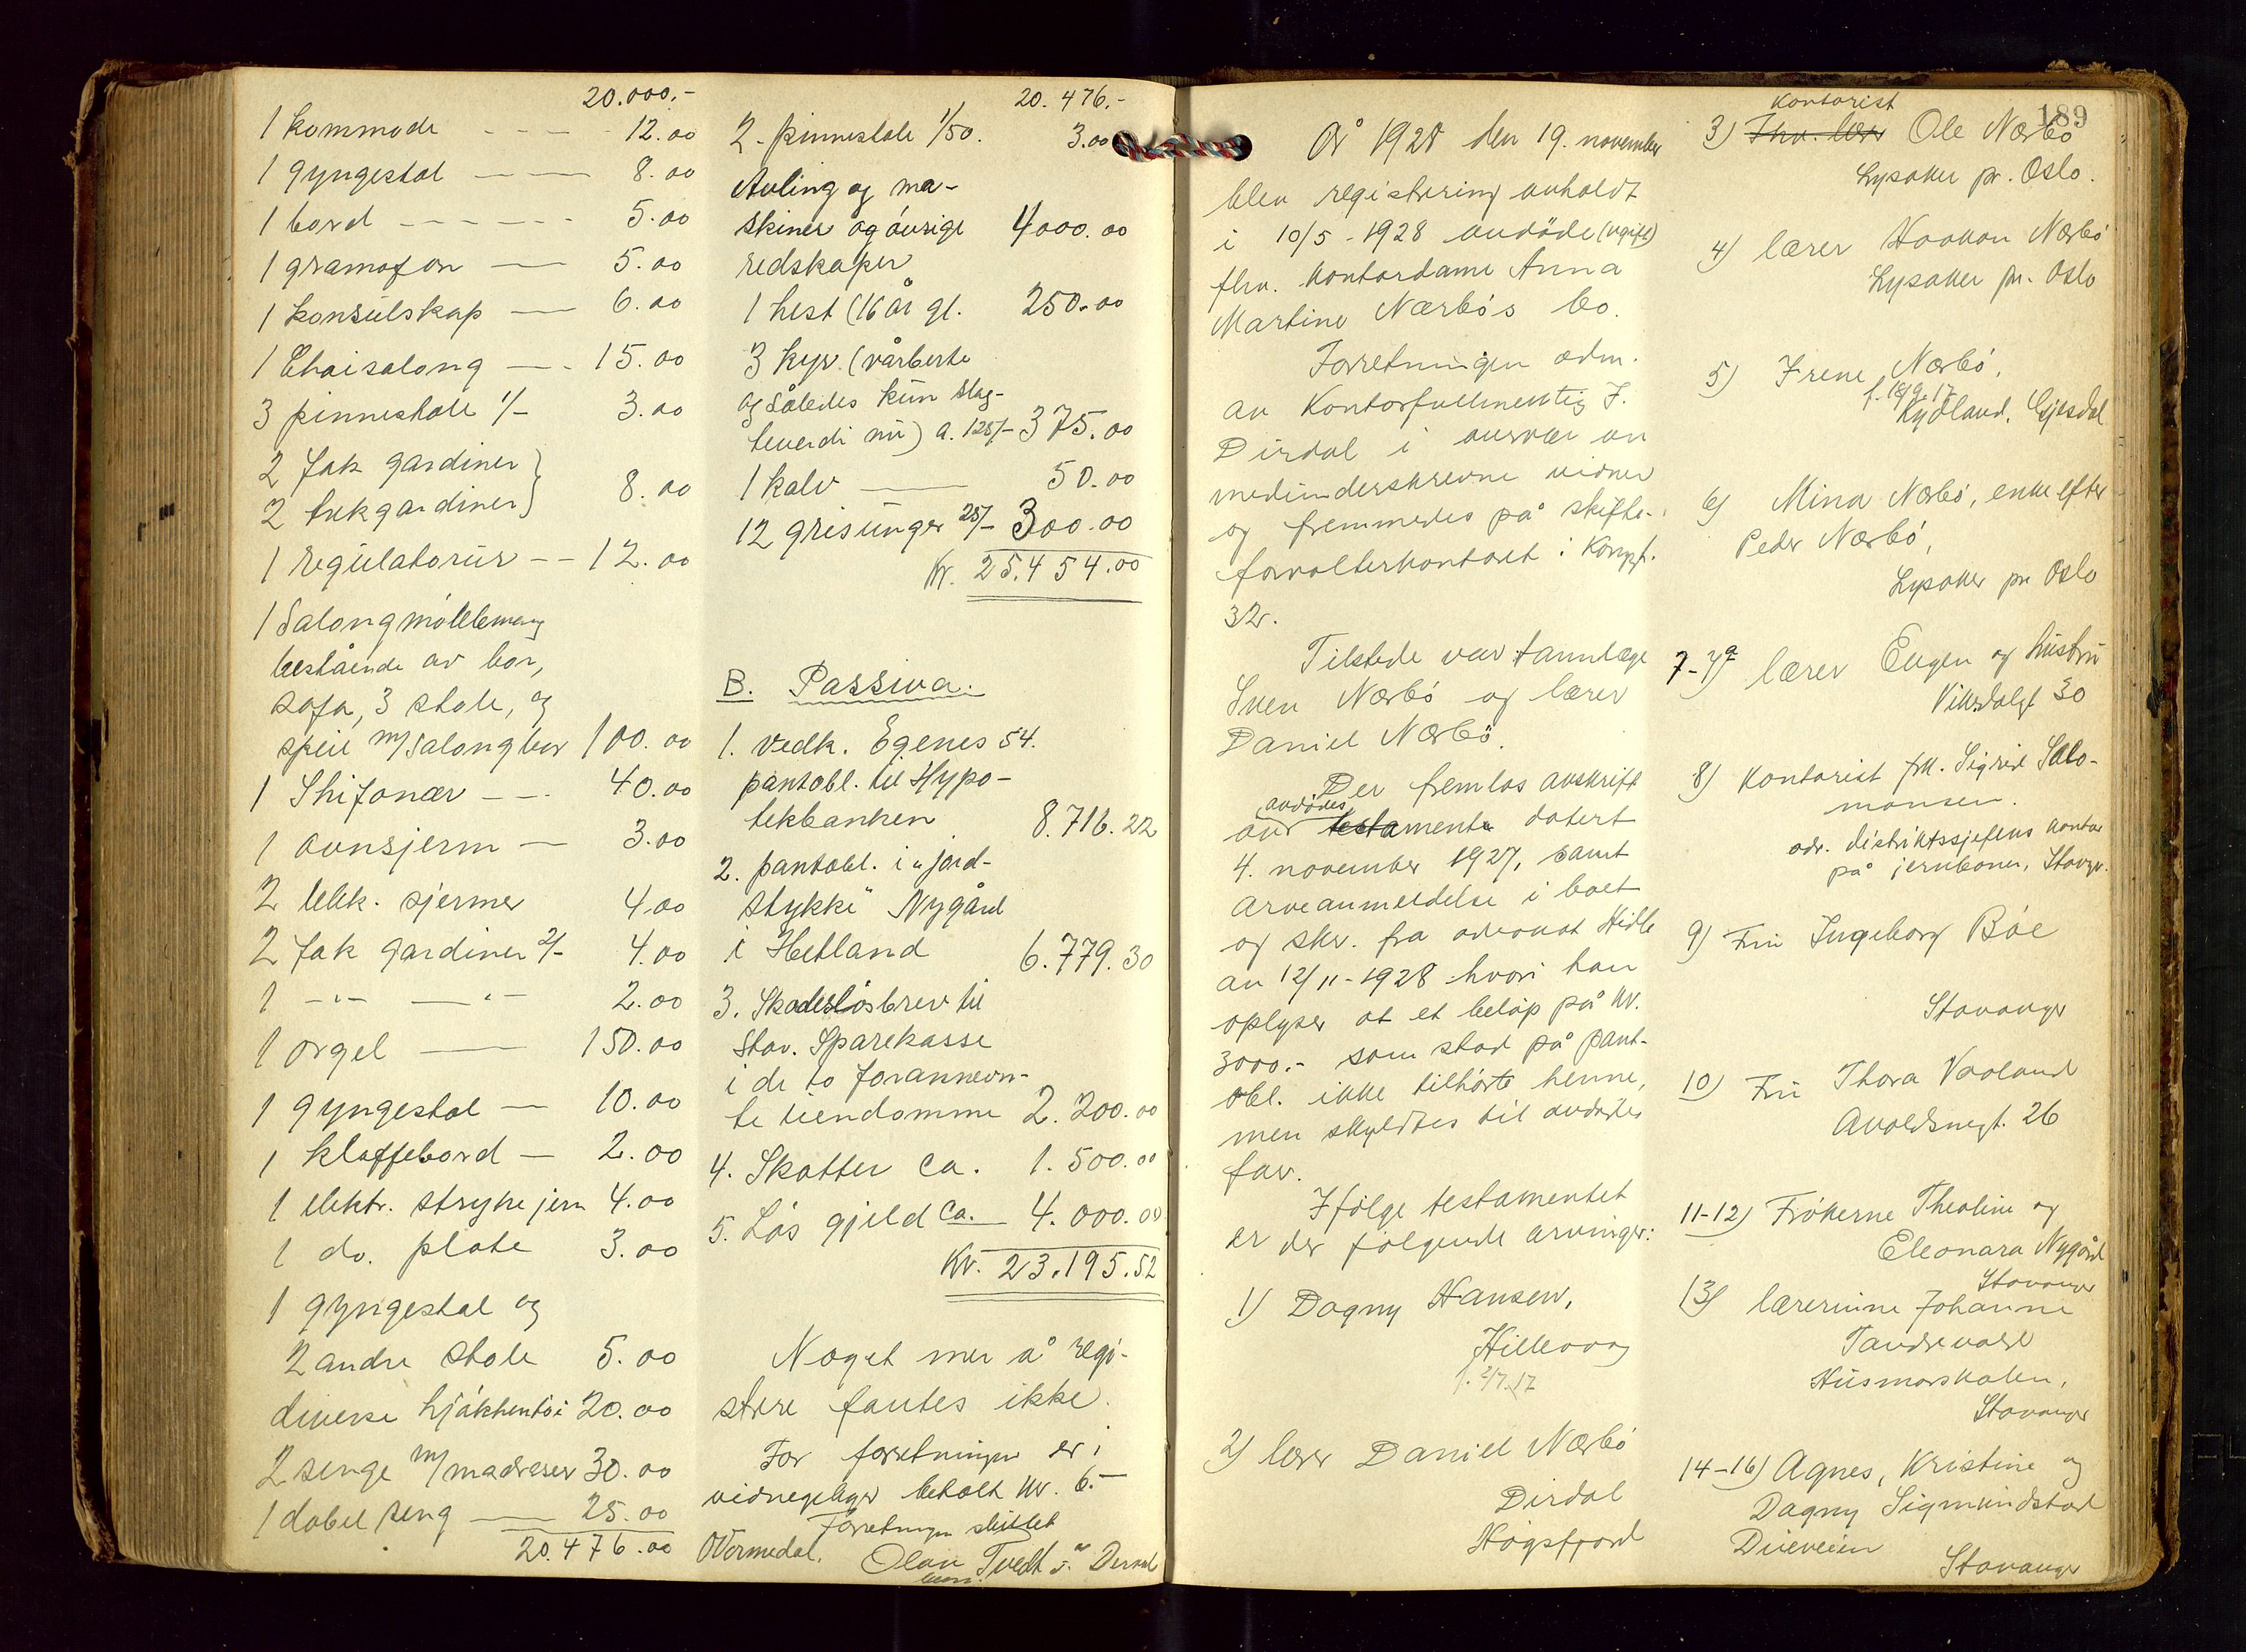 20.000.-
1 kommode - - - - 12.00
1 gyngestol — — 8.00
1 bord - - - - - - 5.00
1 gramofon — 5.00
1 konsulskap — 6.00
1 Chaisalong — - 15.00
3 pinnestole 1/- 3.00
2 fak gardiner }
2 trekgardiner } 8.00
1 regulatorur - - 12.00
1 Salongmöblemang
bestående av bor,
sofa, 3 stole, og
speil m/salongbor 100.00
1 Shifonær - - - 40.00
1 ovnsjerm — 3.00
2 elekk. sjermer 4.00
2 fak gardiner 2/- 4.00
1 -"- — "- 2.00
1 orgel — 150.00
1 gyngestol — 10.00
1 klaffebord — 2.00
1 elektr. strykejern 4.00
1 do. plate 3.00
1 gyngestol og
2 andre stole 5.00
diverse kjøkkentöi 20.00
2 senge m/madraser 30.00
1 dobel seng — 25.00
20.476.00
20.476.-
2 - pinnestole 1/50. 3.00
Avling og ma-
skiner og övrige 4000.00
redskaper
1 hest (16 år gl. 250.00
3 kyr (vårberte
og således kun slag-
teverdi nu) a. 125/- 375.00
1 kalv — 50.00
12 grisunger 25/- 300.00
Kr. 25.454.00
B. Passiva.
1. Vedk. Egenes 54.
pantobl. til Hypo-
tekbanken 8.716.22
2. pantobl. i "jord-
stykke" Nygård
i Hetland 6.779.30
3. Skadeslösbrev til
Stav. Sparekasse
i de to forannevn-
te eiendomme 2.200.00
4. Skatter ca. 1.500.00
5. Lös gjeld ca. — 4.000.00
Kr. 23.195.52
Noget mer å regi-
strere fantes ikke.
For forretningen er i
vidnegebyr betalt kr. 6.-
Forretningen sluttet
O Vormedal. Olav Tvedt J. Dirdal
År 1928 den 19. november
blev registrering avholdt
i 10/5 - 1928 avdöde (ugift)
fhv. kontordame Anna
Martine Nærbö's bo.
Forretningen adm.
av Kontorfullmektig J.
Dirdal i nærvær av
medunderskrevne vidner
og fremmedes på skifte-
forvalterkontoret i Kongsgt.
32.
Tilstede var tannlæge
Sven Nærbö og lærer
Daniel Nærbö.
Der fremlas avskrift
avdödes
av testamente datert
4. november 1927, samt
arveanmeldelse i boet
og skr. fra advokat Hidle
av 12/11 - 1928 hvori han
oplyser at et belöp på kr.
3000.- som stod på pant-
obl. ikke tilhörte henne,
men skyldtes til avdödes
far.
Ifölge testamentet
er der fölgende arvinger:
1) Dagny Hansen,
Hillevåg
f. 2/7.17
2) lærer Daniel Nærbö
Dirdal
Högsfjord
189
kontorist
3) Fhv. lær Ole Nærbö
Lysaker pr. Oslo.
4) lærer Haakon Nærbö
Lysaker pr. Oslo
5) Irene Nærbö,
f. 18/9.17
Kydland, Gjesdal
6) Mina Nærbö, enke efter
Peder Nærbö,
Lysaker pr Oslo
7-7a lærer Eugen og hustru
Vikedalsgt 30
8) Kontorist frk. Sigrid Salo-
monsen.
adr. distriktssjefens kontor
på jernbanen, Stavgr.
9) Fru Ingeborg Böe
Stavanger
10) Fru Thora Vaaland
Avaldsnesgt. 26
11-12) Frökerne Theoline og
Eleonora Nygård
Stavanger
13) lærerinne Johanne
Tandrevold
Husmorskolen,
Stavanger
14-16) Agnes, Kristine og
Dagny Sigmundstad
Dueveien
Stavanger